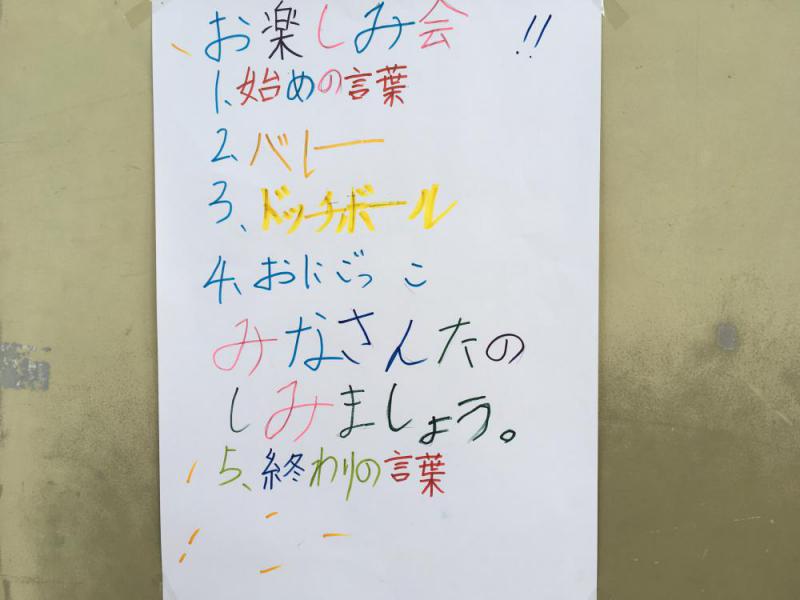 お楽しみ会!!
1、始めの言葉
2、バレー
3、ドッチボール
4、おにごっこ
みなさんたの
しみましょう。
5、終わりの言葉